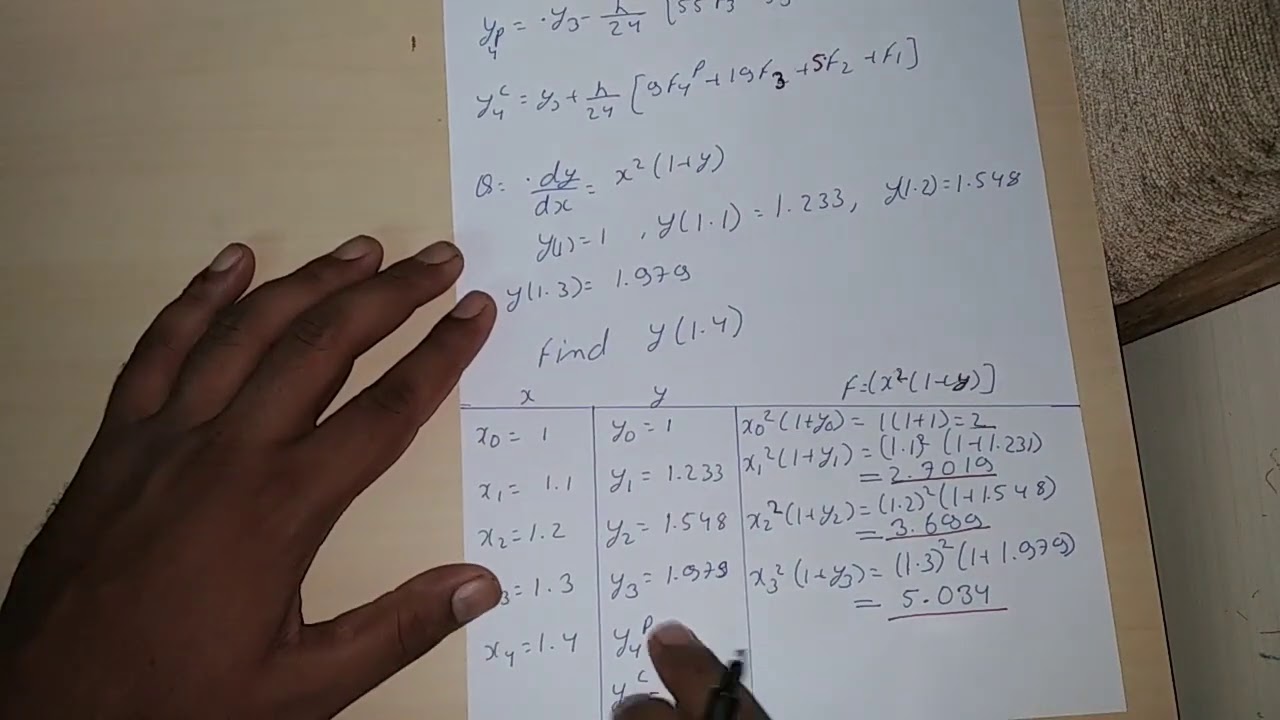 y₄ᵖ = y₃ - h/24 [55
y₄ᶜ = y₃ + h/24 [9F₄ᵖ + 19F₃ + 5F₂ + F₁]
Q: dy/dx = x² (1+y)
y(1) = 1 , y(1.1) = 1.233, y(1.2) = 1.548
y(1.3) = 1.979
Find y(1.4)
x y F = (x²(1+y)]
x₀ = 1 y₀ = 1 x₀²(1+y₀) = 1(1+1) = 2
x₁ = 1.1 y₁ = 1.233 x₁²(1+y₁) = (1.1)² (1+1.231)
= 2.7019
x₂ = 1.2 y₂ = 1.548 x₂²(1+y₂) = (1.2)²(1+1.548)
= 3.699
₃ = 1.3 y₃ = 1.979 x₃²(1+y₃) = (1.3)²(1+1.979)
= 5.034
x₄ = 1.4 y₄ᵖ
y ᶜ =